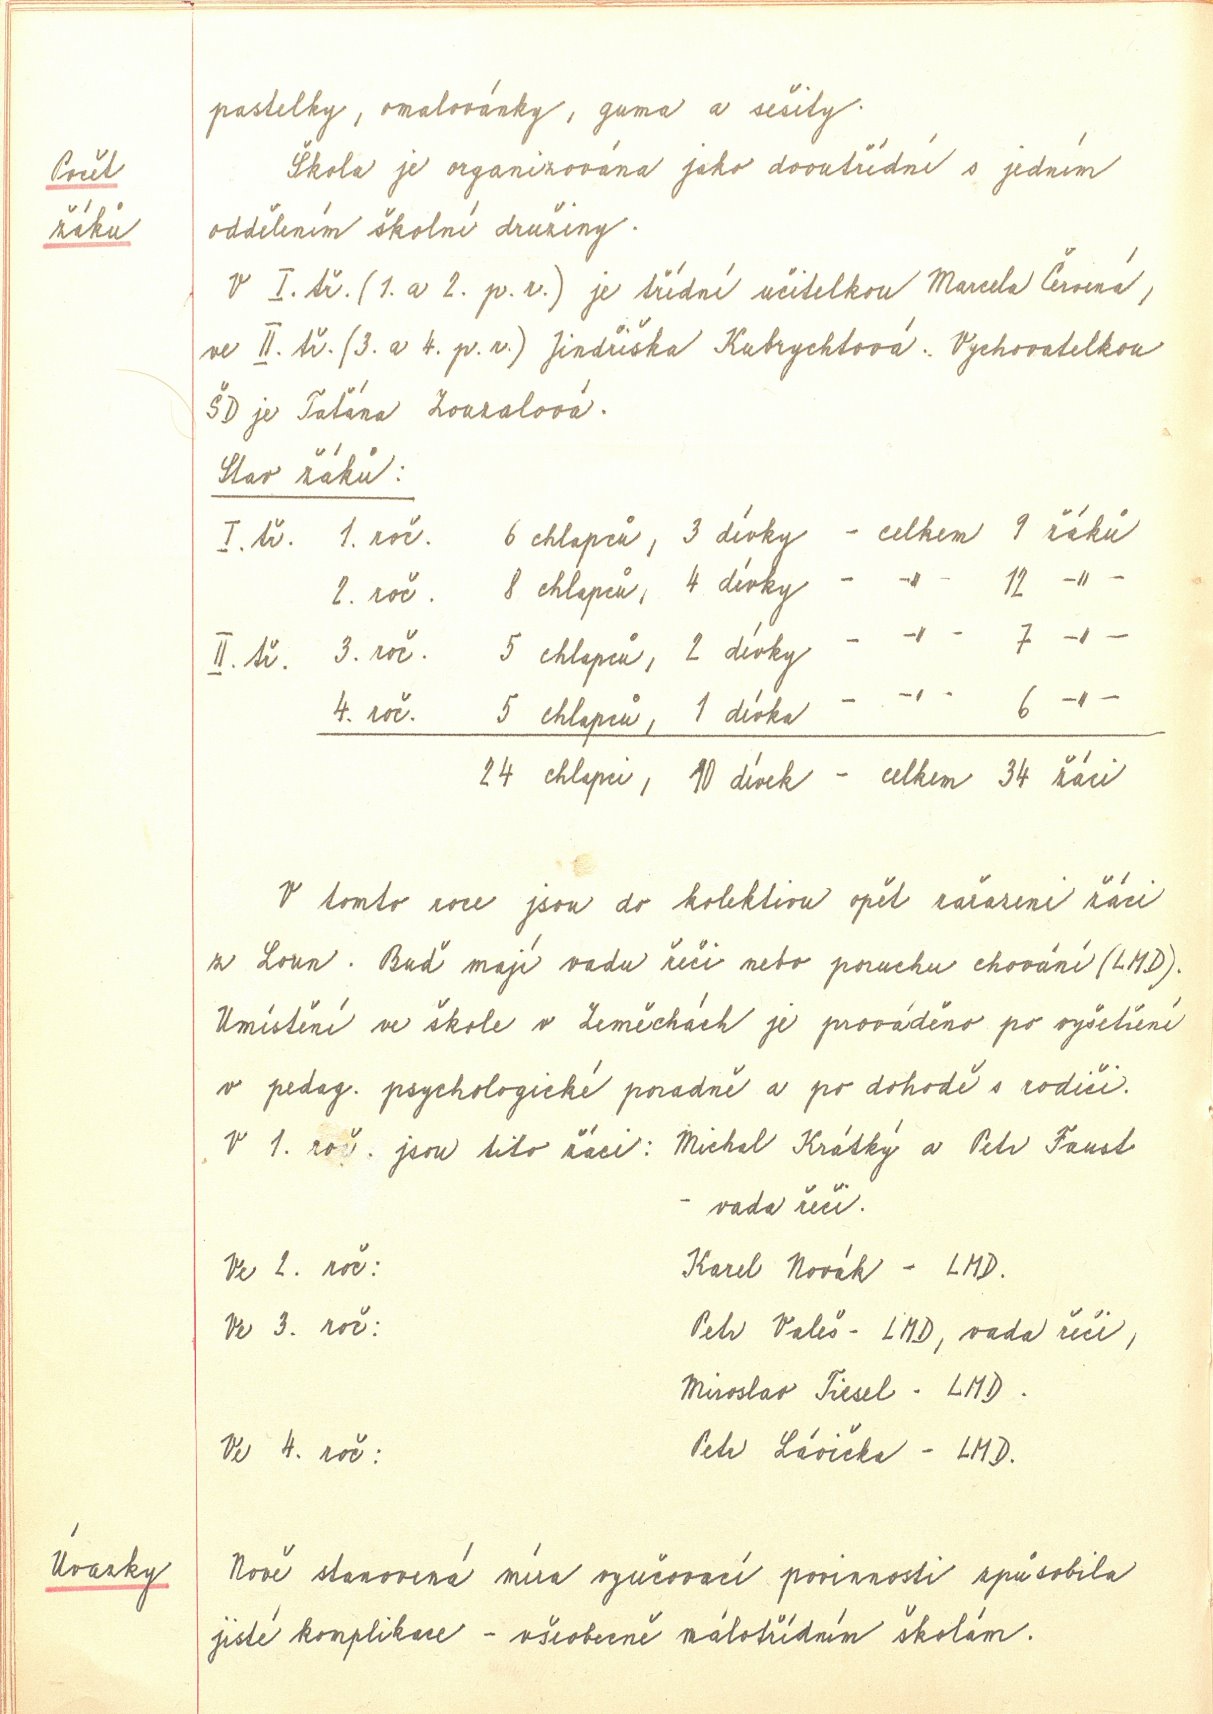 pastelky, omalovánky, guma a sešity.
Počet
Škola je organizována jako dvoutřídní s jedním
žáků
oddělením školní družiny.
V I. tř. (1. a 2. p. r.) je třídní učitelkou Marcela Červená,
ve II. tř. (3. a 4. p. r.) Jindřiška Kubrychtová. Vychovatelkou
ŠD je Taťána Zouzalová.
Stav žáků:
I. tř. 1. roč. 6 chlapců, 3 dívky - celkem 9 žáků
2. roč. 8 chlapců, 4 dívky - -"- 12 -"-
II. tř. 3. roč. 5 chlapců, 2 dívky - -"- 7 -"-
4. roč. 5 chlapců, 1 dívka - -"- 6 -"-
24 chlapci, 10 dívek - celkem 34 žáci
V tomto roce jsou do kolektivu opět zařazeni žáci
z Loun. Buď mají vadu řeči nebo poruchu chování (LMD).
Umístění ve škole v Zeměchách je prováděno po vyšetření
v pedag. psychologické poradně a po dohodě s rodiči.
V 1. roč. jsou tito žáci: Michal Krátký a Petr Faust
- vada řeči.
Ve 2. roč: Karel Novák - LMD.
Ve 3. roč: Petr Valeš - LMD, vada řeči,
Miroslav Tiesel - LMD.
Ve 4. roč: Petr Lávička - LMD.
Úvazky
Nově stanovená míra vyučovací povinnosti způsobila
jisté komplikace - všeobecně málotřídním školám.